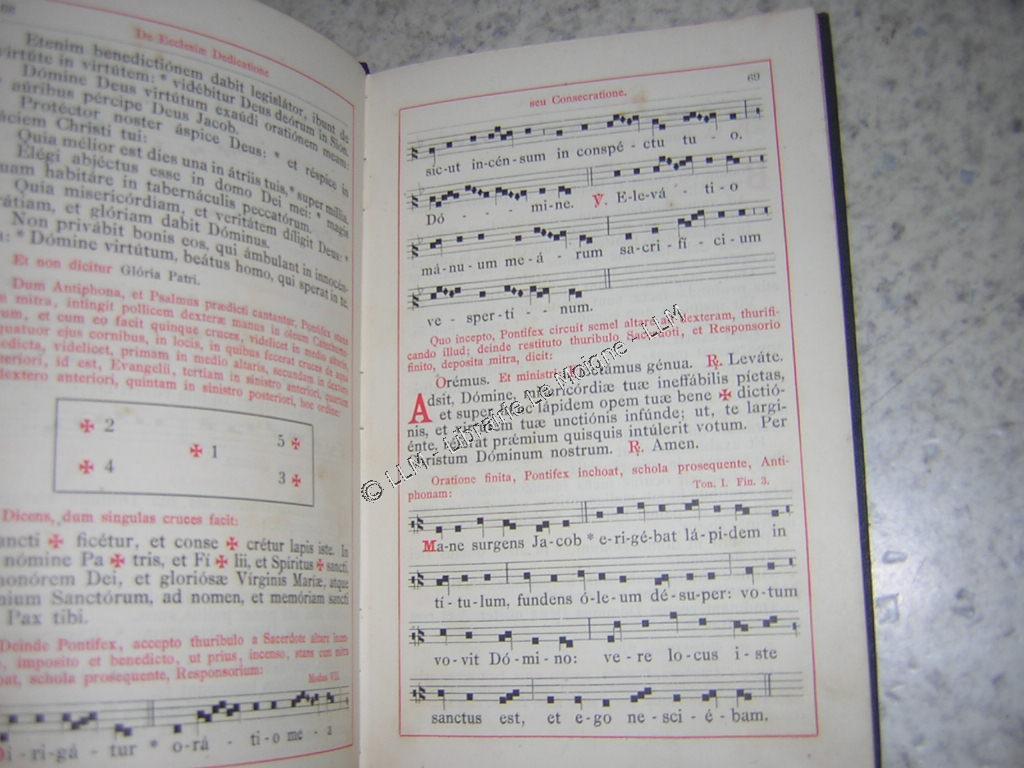 68
De Ecclesiæ Dedicatione
Etenim benedictiónem dabit legislátor, ibunt de
virtúte in virtútem: * vidébitur Deus deórum in Sion.
Dómine Deus virtútum exaudi oratiónem meam:
áuribus pércipe Deus Jacob.
Protéctor noster áspice Deus: * et réspice in
fáciem Christi tui:
Quia mélior est dies una in átriis tuis,* super millia.
Elégi abjéctus esse in domo Dei mei: * magis
quam habitáre in tabernáculis peccatórum.
Quia misericórdiam, et veritátem díligit Deus: *
grátiam, et glóriam dabit Dóminus.
Non privábit bonis eos, qui ámbulant in innocén-
a: * Dómine virtútum, beátus homo, qui sperat in te.
Et non dicitur Glória Patri.
Dum Antiphona, et Psalmus prædicti cantantur, Pontifex stans
mitra, intingit pollicem dexteræ manus in oleum Catechume-
rum, et cum eo facit quinque cruces, videlicet in medio altaris,
quatuor ejus cornibus, in locis, in quibus fecerat cruces de aqua
dicta, videlicet, primam in medio altaris, secundam in dextero
teriori, id est, Evangelii, tertiam in sinistro anteriori, quartam
dextero anteriori, quintam in sinistro posteriori, hoc ordine:
✠ 2
5 ✠
✠ 1
✠ 4
3 ✠
Dicens, dum singulas cruces facit:
ancti ✠ ficétur, et conse ✠ crétur lapis iste. In
nómine Pa ✠ tris, et Fí ✠ lii, et Spíritus ✠ sancti,
honórem Dei, et gloriósæ Vírginis Maríæ, atque
nium Sanctórum, ad nomen, et memóriam sancti
Pax tibi.
Deinde Pontifex, accepto thuribulo a Sacerdote altare
, imposito et benedicto, ut prius, incenso, stans cum mitra
oat, schola prosequente, Responsorium:
Modus VII.
Di - ri - gá - tur * o - rá - ti - o me - a
69
seu Consecratione.
sic - ut in - cén - sum in conspé - ctu tu - o.
Dó - - - mi - ne. ℣. E - le - vá - ti - o
má - nu - um me - á - rum sa - cri - fí - ci - um
ve - sper - tí - num.
Quo incepto, Pontifex circuit semel altare ad dexteram, thurifi-
cando illud; deinde restituto thuribulo Sacerdoti, et Responsorio
finito, deposita mitra, dicit:
Orémus. Et ministri: Flectámus génua. ℟. Leváte.
Adsit, Dómine, misericórdiæ tuæ ineffábilis píetas,
et super hunc lápidem opem tuæ bene ✠ dictió-
nis, et virtútem tuæ unctiónis infúnde; ut, te largi-
énte, réferat præmium quisquis intúlerit votum. Per
Christum Dóminum nostrum. ℟. Amen.
Oratione finita, Pontifex inchoat, schola prosequente, Anti-
phonam:
Ton. I. Fin. 3.
Mane surgens Ja - cob * e - ri - gé - bat lá - pi - dem in
tí - tu - lum, fundens ó - le - um dé - su - per: vo - tum
vo - vit Dó - mi - no: ve - re lo - cus i - ste
sanctus est, et e - go ne - sci - é - bam.
© LLM - Librairie Le Moigne - LLM